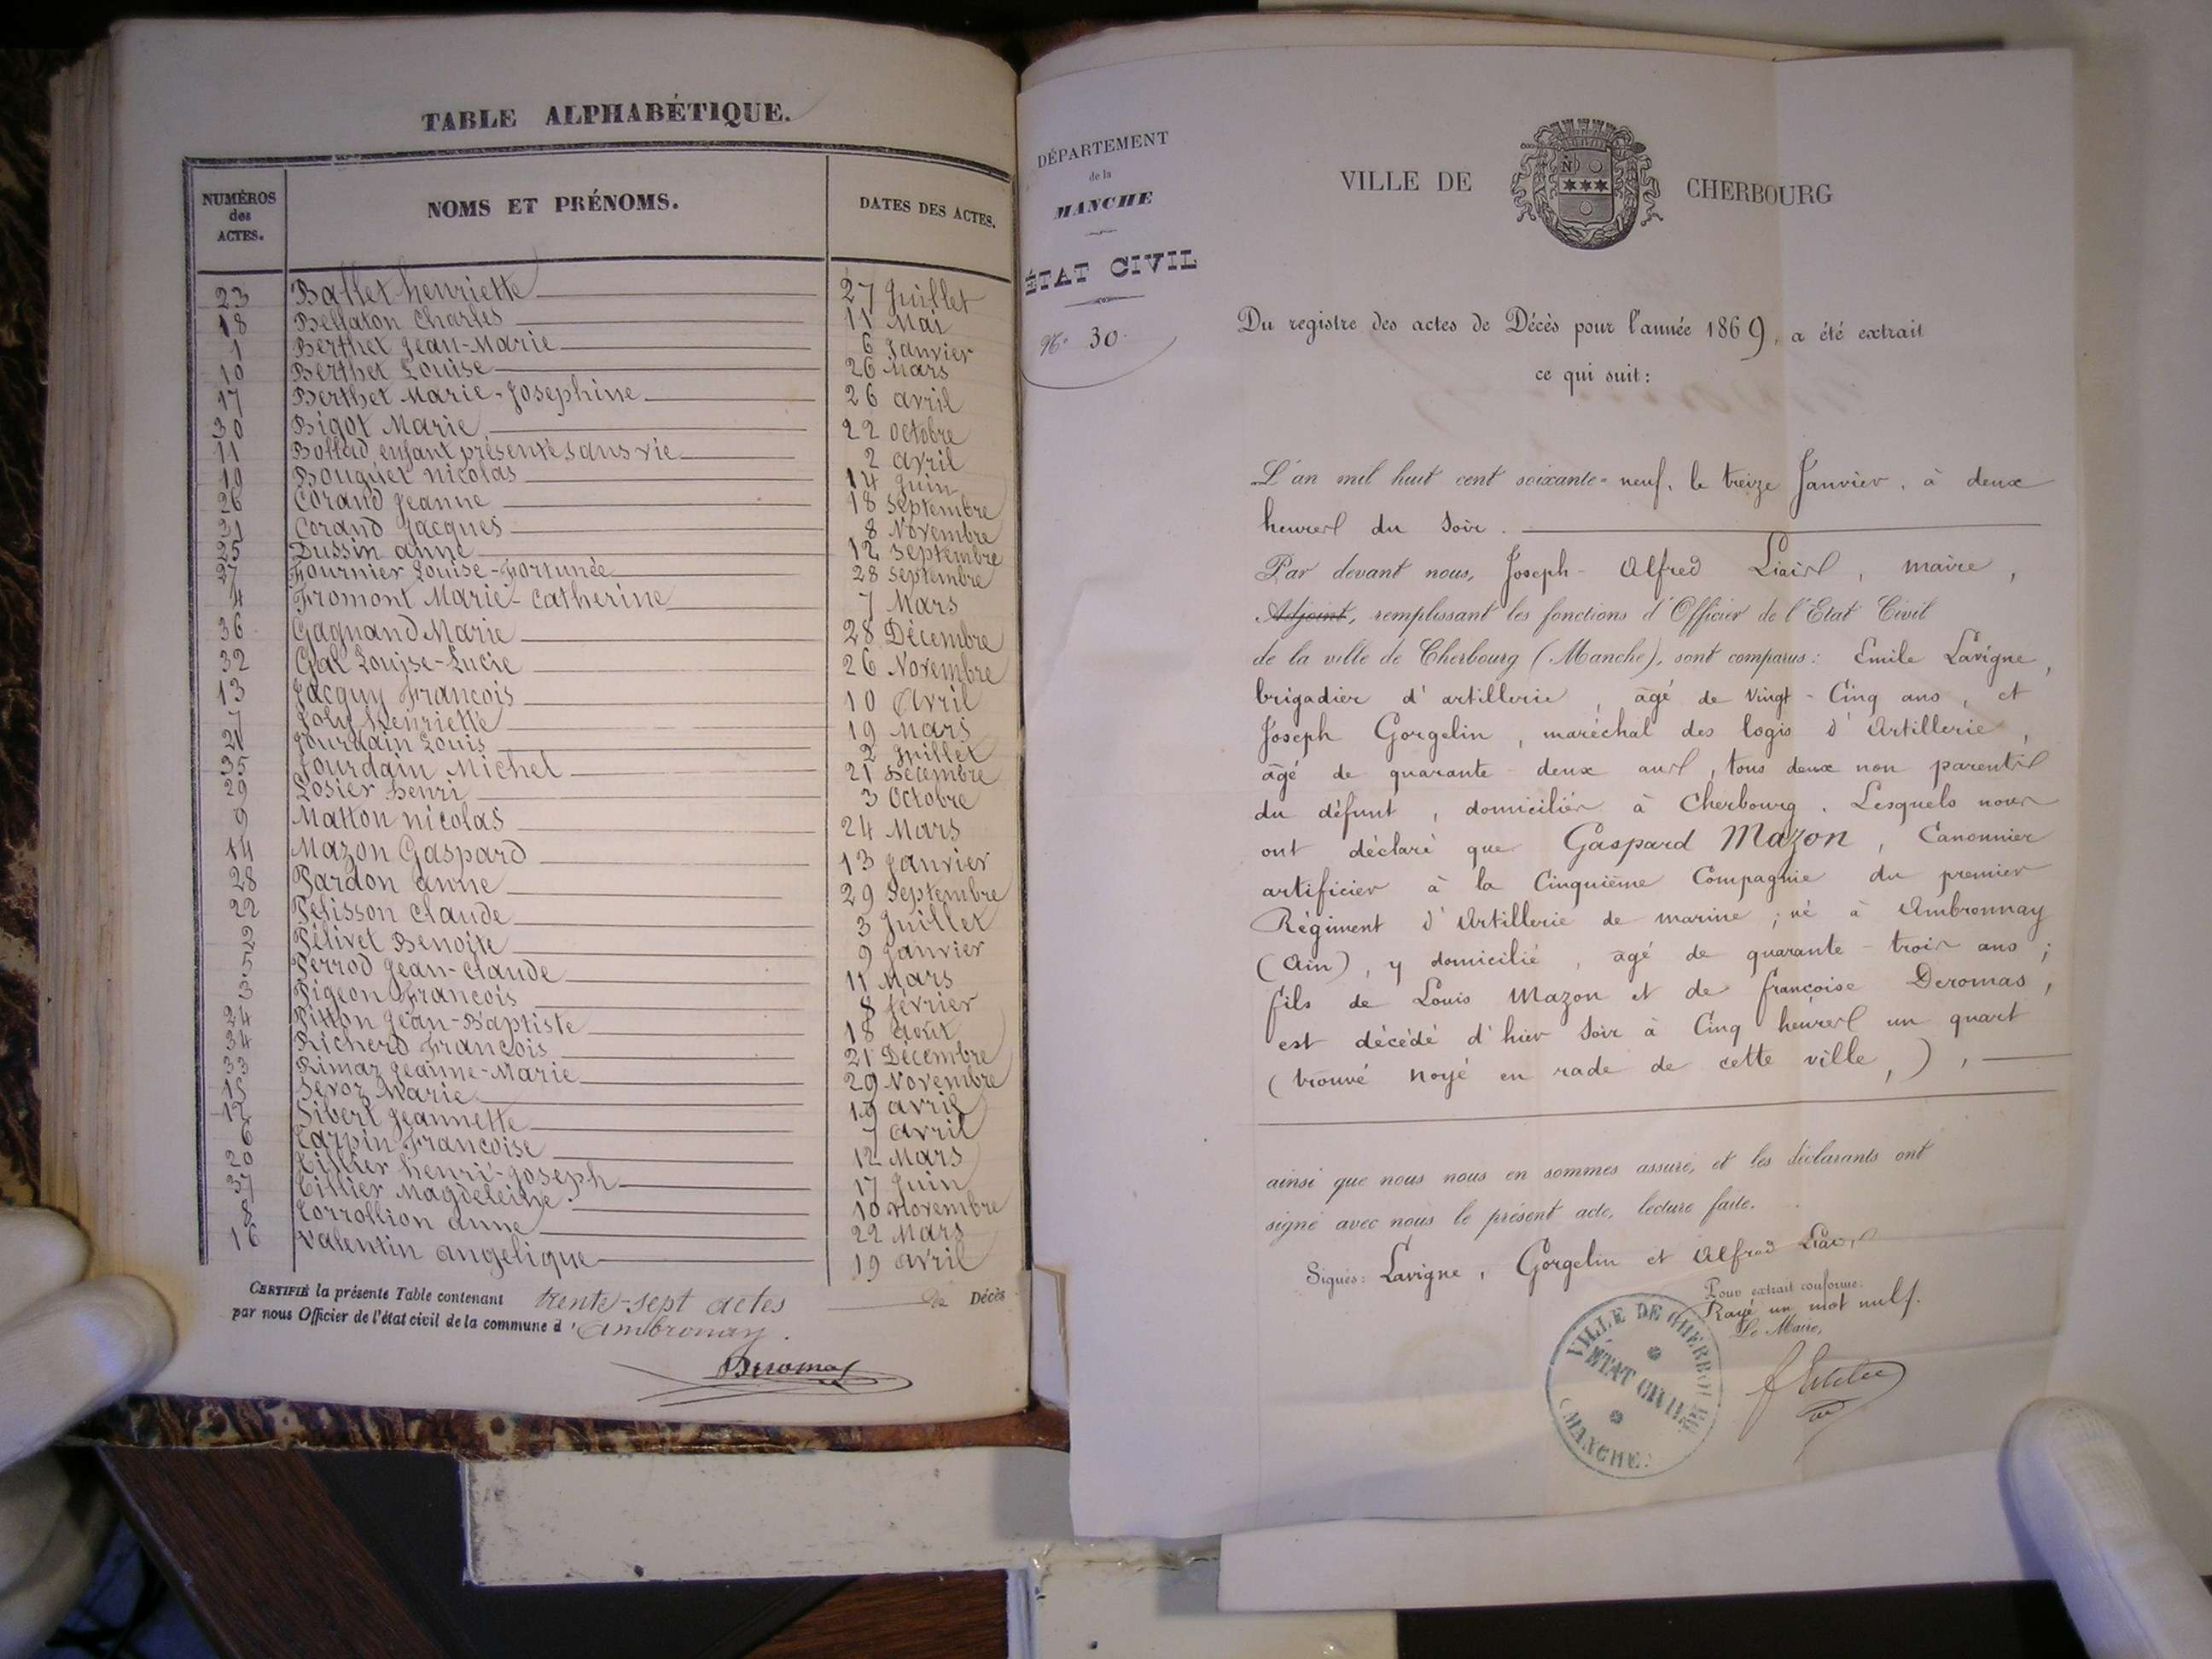 TABLE ALPHABÉTIQUE.
NUMÉROS des ACTES.
NOMS ET PRÉNOMS.
DATES DES ACTES.
23 Ballet henriette 27 Juillet
18 Bellaton Charles 11 Mai
1 Berthet Jean-Marie 6 Janvier
10 Berthet Louise 26 Mars
17 Berthet Marie-Josephine 26 avril
30 Bigot Marie 22 octobre
11 Bollad enfant présenté sans vie 2 avril
19 Bouguet nicolas 14 Juin
26 Corand Jeanne 18 Septembre
31 Corand Jacques 8 Novembre
25 Dussin anne 12 Septembre
27 Fournier Louise-Fortunée 28 Septembre
4 Fromont Marie-Catherine 7 Mars
36 Gagnand Marie 28 Décembre
32 Gal Louise-Lucie 26 Novembre
13 Jacquy François 10 Avril
7 Joly Henriette 19 Mars
21 Jourdain Louis 2 Juillet
35 Jourdain Michel 21 Décembre
29 Losier henri 3 Octobre
9 Matton nicolas 24 Mars
14 Mazon Gaspard 13 Janvier
28 Pardon anne 29 Septembre
22 Pelisson Claude 3 Juillet
2 Pélivet Benoite 9 Janvier
5 Perrod Jean-Claude 11 Mars
3 Pigeon François 8 février
24 Pitton Jean-Baptiste 18 Août
34 Richerd François 21 Décembre
33 Rimaz Jeanne-Marie 29 Novembre
15 Sevoz Marie 19 avril
12 Sibert Jeannette 7 avril
6 Tarpin Françoise 12 Mars
20 Tillier henri-Joseph 17 Juin
37 Tillier Magdeleine 10 Novembre
8 Torrollion anne 22 Mars
16 Valentin angelique 19 avril
CERTIFIÉ la présente Table contenant trente-sept actes de Décès
par nous Officier de l'état civil de la commune d'Ambronay.
Deromas
DÉPARTEMENT
de la
MANCHE
ÉTAT CIVIL
N° 30.
VILLE DE CHERBOURG
Du registre des actes de Décès pour l'année 1869, a été extrait
ce qui suit:
L'an mil huit cent soixante-neuf, le treize Janvier, à deux
heures du soir.
Par devant nous, Joseph-Alfred Liais, maire,
Adjoint, remplissant les fonctions d'Officier de l'Etat Civil
de la ville de Cherbourg (Manche), sont comparus: Emile Lavigne,
brigadier d'artillerie, âgé de vingt-Cinq ans, et
Joseph Gorgelin, maréchal des logis d'Artillerie,
âgé de quarante deux ans, tous deux non parents
du défunt, domiciliés à Cherbourg. Lesquels nous
ont déclaré que Gaspard Mazon, Canonnier
artificier à la Cinquième Compagnie du premier
Régiment d'Artillerie de marine; né à Ambronnay
(Ain), y domicilié, âgé de quarante-trois ans;
fils de Louis Mazon et de françoise Deromas,
est décédé d'hier soir à Cinq heures un quart
(trouvé noyé en rade de cette ville,),
ainsi que nous nous en sommes assuré, et les déclarants ont
signé avec nous le présent acte, lecture faite.
Signés: Lavigne, Gorgelin et Alfred Liais
Pour extrait conforme:
Rayé un mot nul.
Le Maire,
VILLE DE CHERBOURG
ÉTAT CIVIL
(MANCHE)